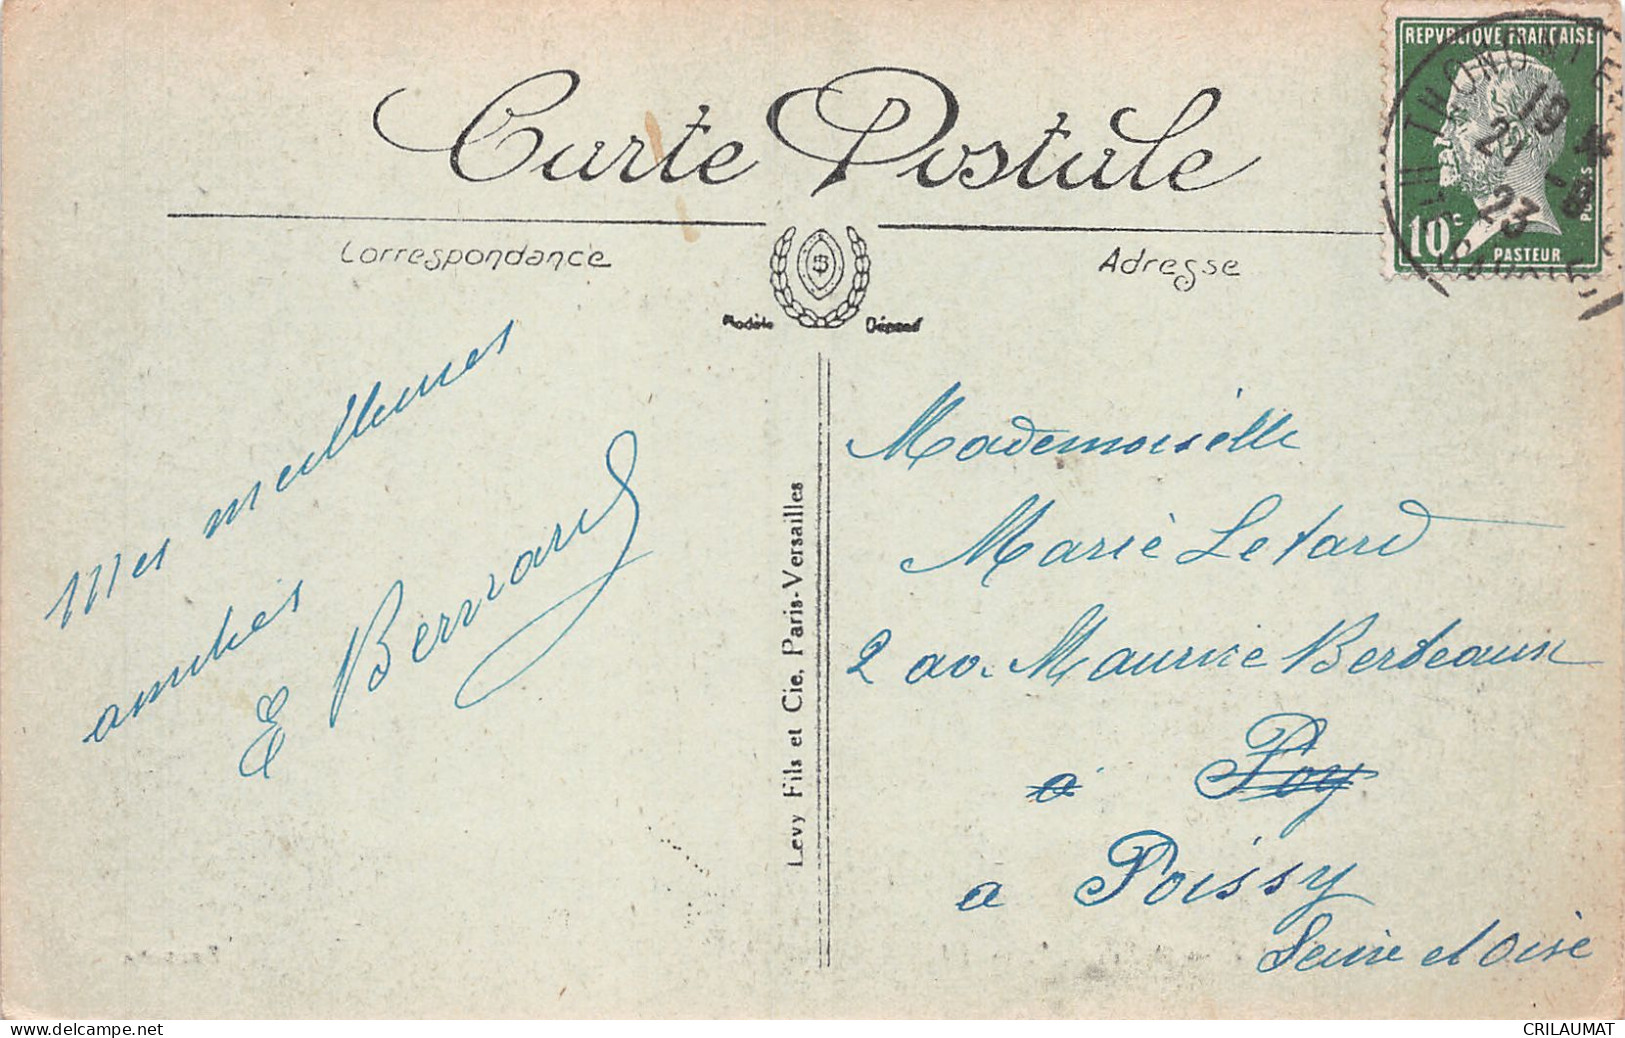 Carte Postale
Correspondance
Adresse
Modèle Déposé
REPVBLIQVE FRANÇAISE
10c
POSTES
PASTEUR
19
21 -8
23
SAVOIE
Mes meilleures
amitiés
E Bernard
Levy Fils et Cie, Paris-Versailles
Mademoiselle
Marie Letard
2 av. Maurice Berteaux
à Poy
a Poissy
Seine et Oise
delcampe.net
CRILAUMAT